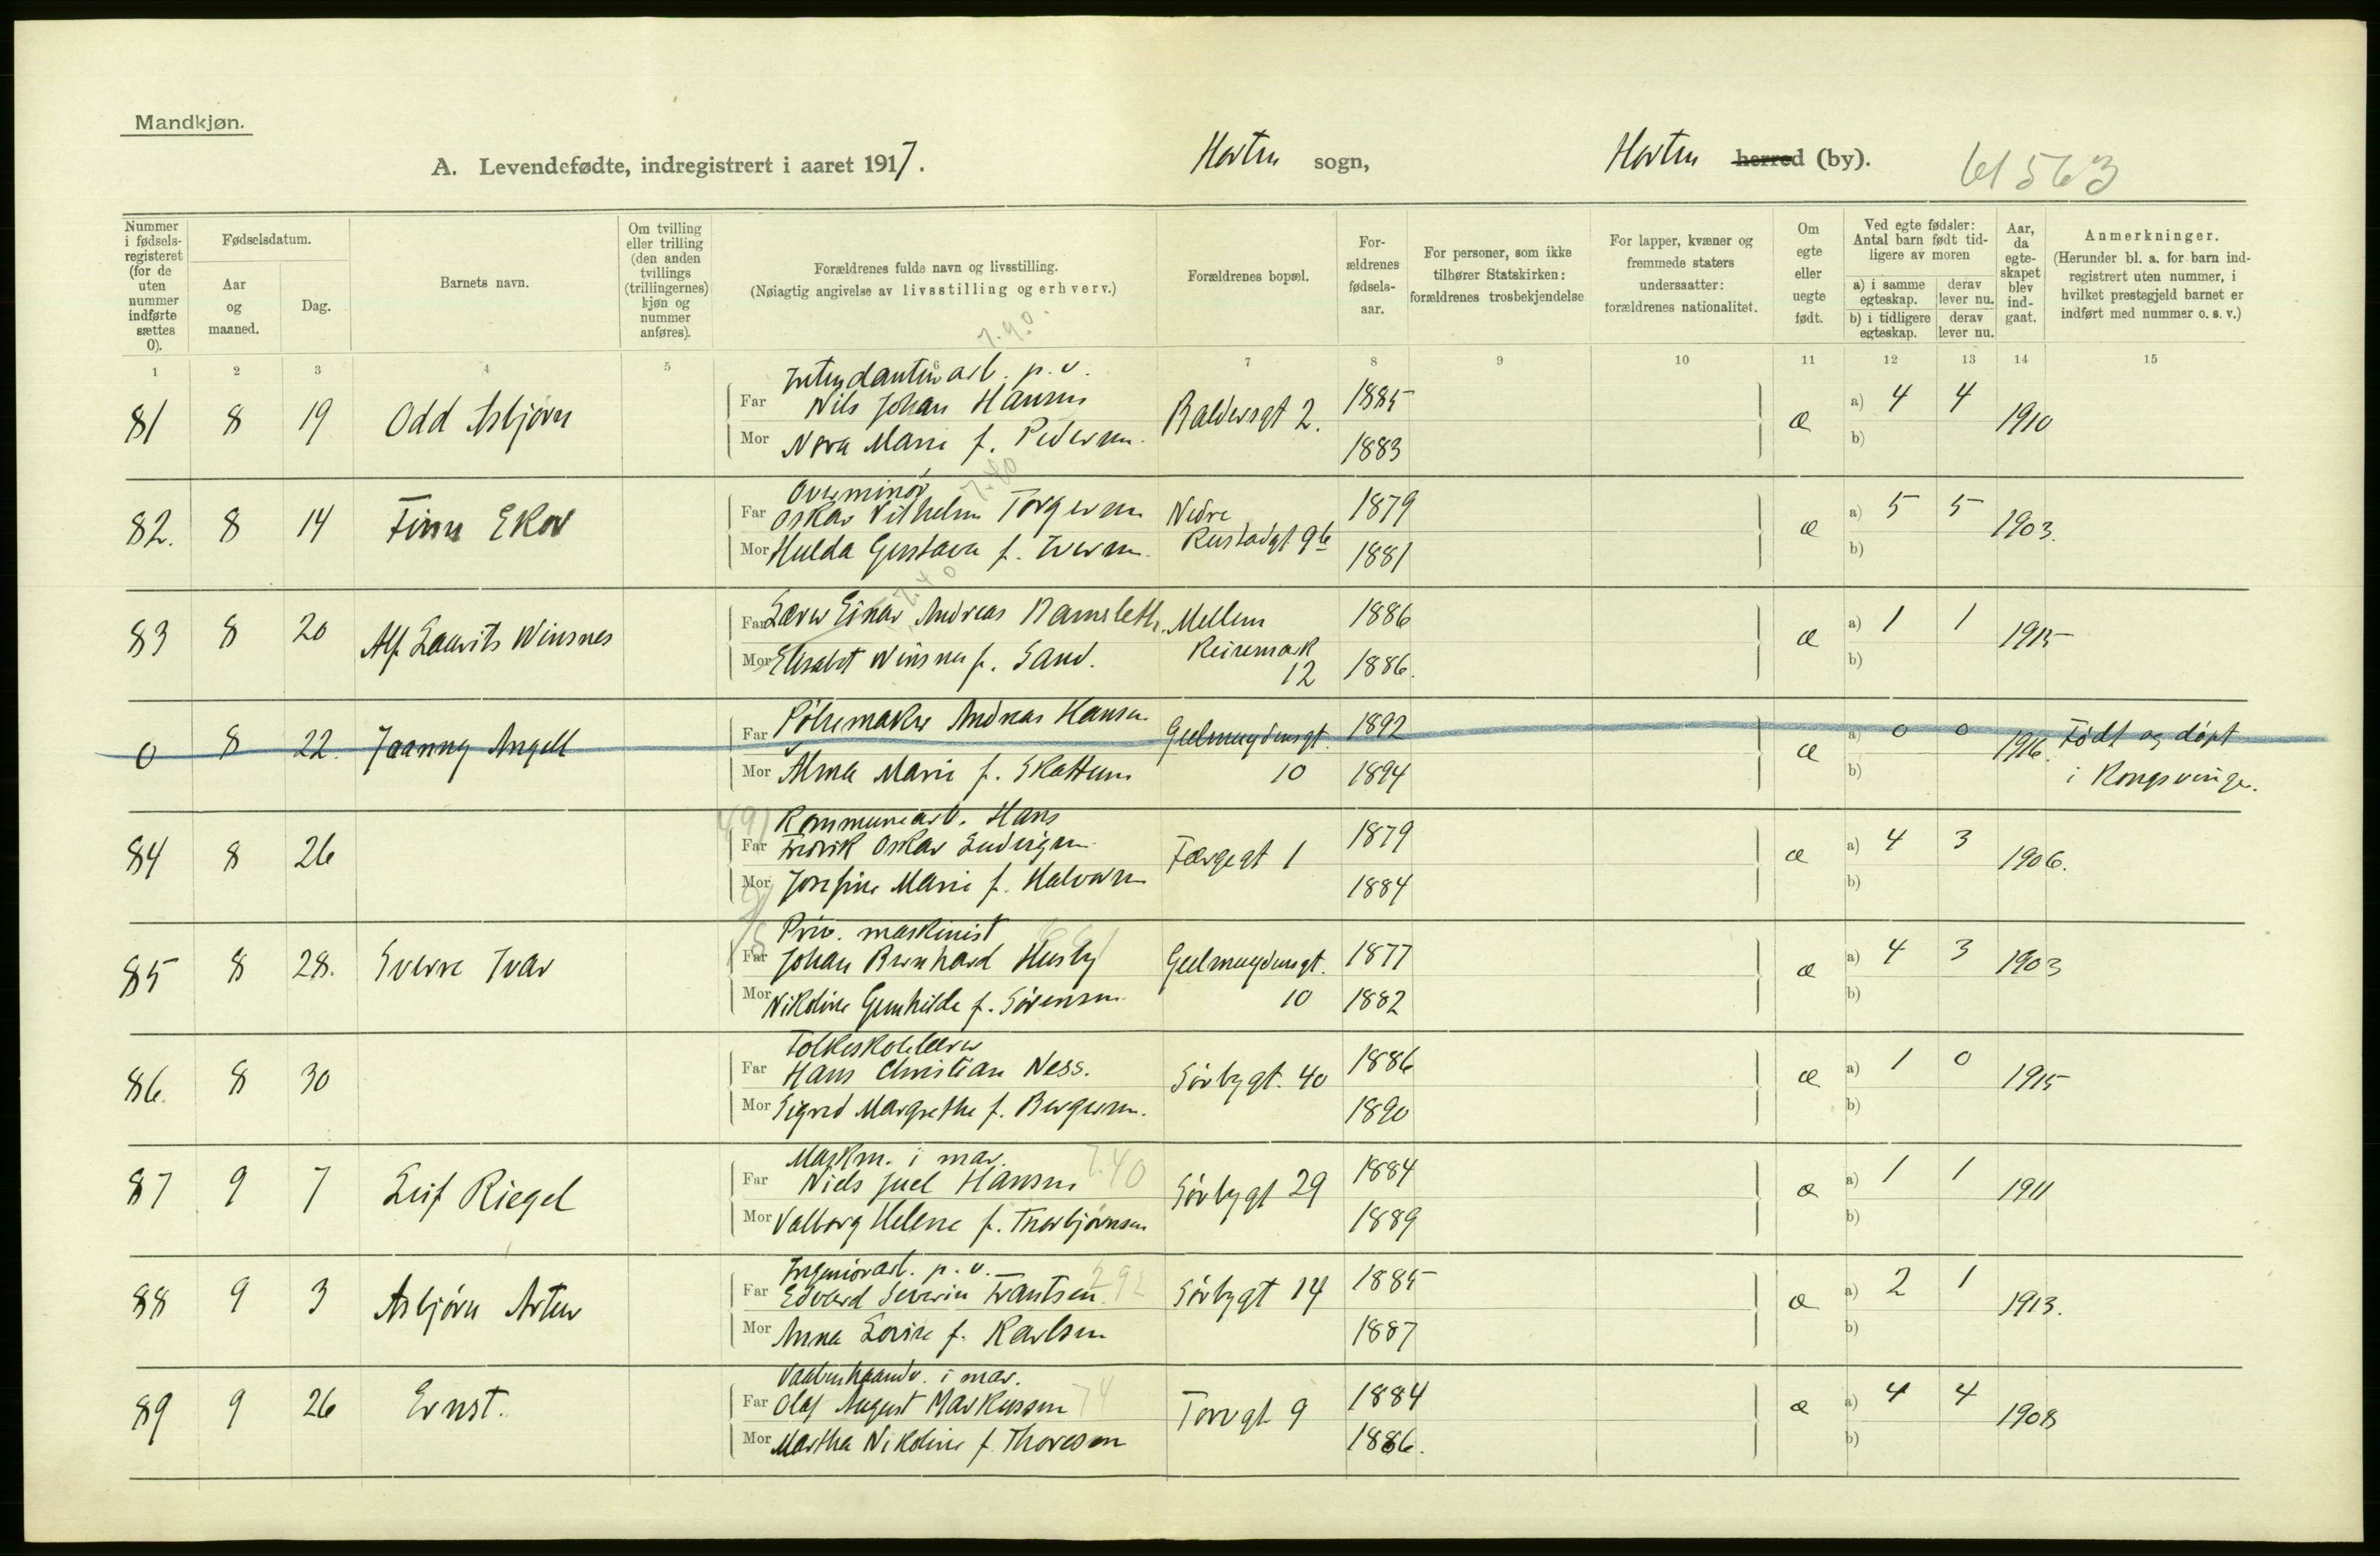 Mandkjøn.
A. Levendefødte, indregistrert i aaret 1917. Horten sogn, Horten herred (by). 61563
Nummer i fødselsregisteret (for de uten nummer indførte sættes 0).
Fødselsdatum.
Aar og maaned.
Dag.
Barnets navn.
Om tvilling eller trilling (den anden tvillings (trillingernes) kjøn og nummer anføres).
Forældrenes fulde navn og livsstilling.
(Nøiagtig angivelse av livsstilling og erhverv.)
Forældrenes bopæl.
Forældrenes fødselsaar.
For personer, som ikke tilhører Statskirken: forældrenes trosbekjendelse
For lapper, kvæner og fremmede staters undersaatter: forældrenes nationalitet.
Om egte eller uegte født.
Ved egte fødsler: Antal barn født tidligere av moren
a) i samme egteskap.
derav lever nu.
b) i tidligere egteskap.
derav lever nu.
Aar, da egteskapet blev indgaat.
Anmerkninger.
(Herunder bl. a. for barn indregistrert uten nummer, i hvilket prestegjeld barnet er indført med nummer o. s. v.)
1 2 3 4 5 6 7 8 9 10 11 12 13 14 15
Intendanturarb. p. v.
81 8 19 Odd Asbjørn Far Nils Johan Hansen Baldersgt 2. 1885 æ a) 4 4 1910
Mor Nora Marie f. Pedersen. 1883 b)
Overminør
82. 8 14 Finn Ekor Far Oskar Vilhelm Torgersen Nedre 1879 æ a) 5 5 1903.
Mor Hulda Gustava f. Iversen. Rustadgt 9b 1881 b)
83 8 20 Alf Laurits Winsnes Far Lærer Einar Andreas Ramsleth. Mellem 1886 æ a) 1 1 1915
Mor Elisabet Winsnes f. Sand. Keisemark 12 1886. b)
0 8 22. Jaanny Angell Far Pølsemaker Andreas Hansen Geelmuydensgt. 1892 æ a) 0 0 1916. Født og døpt
Mor Alma Marie f. Skattum 10 1894 b) i Kongsvinger.
Kommunearb. Hans
84 8 26 Far Fredrik Oskar Ludvigsen Færgegt 1 1879 æ a) 4 3 1906.
Mor Josefine Marie f. Halvorsen 1884 b)
Priv. maskinist
85 8 28. Sverre Ivar Far Johan Bernhard Husby Geelmuydensgt. 1877 æ a) 4 3 1903
Mor Nikoline Gunhilde f. Sørensen 10 1882 b)
Folkeskolelærer
86. 8 30 Far Hans Christian Ness. Sørbygt. 40 1886 æ a) 1 0 1915
Mor Sigrid Margrethe f. Bergersen. 1890 b)
Maskm. i mar.
87 9 7 Leif Riegel Far Niels Juel Hansen Sørbygt 29 1884 æ a) 1 1 1911
Mor Valborg Helene f. Thorbjørnsen 1889 b)
Ingeniørarb. p. v.
88 9 3 Asbjørn Artur Far Edvard Severin Frantsen Sørbygt 14 1885 æ a) 2 1 1913.
Mor Anna Lovise f. Karlsen 1887 b)
Vaabenhaandv. i mar.
89 9 26 Ernst. Far Olaf August Markussen Torvgt 9 1884 æ a) 4 4 1908
Mor Martha Nikoline f. Thoresen 1886. b)